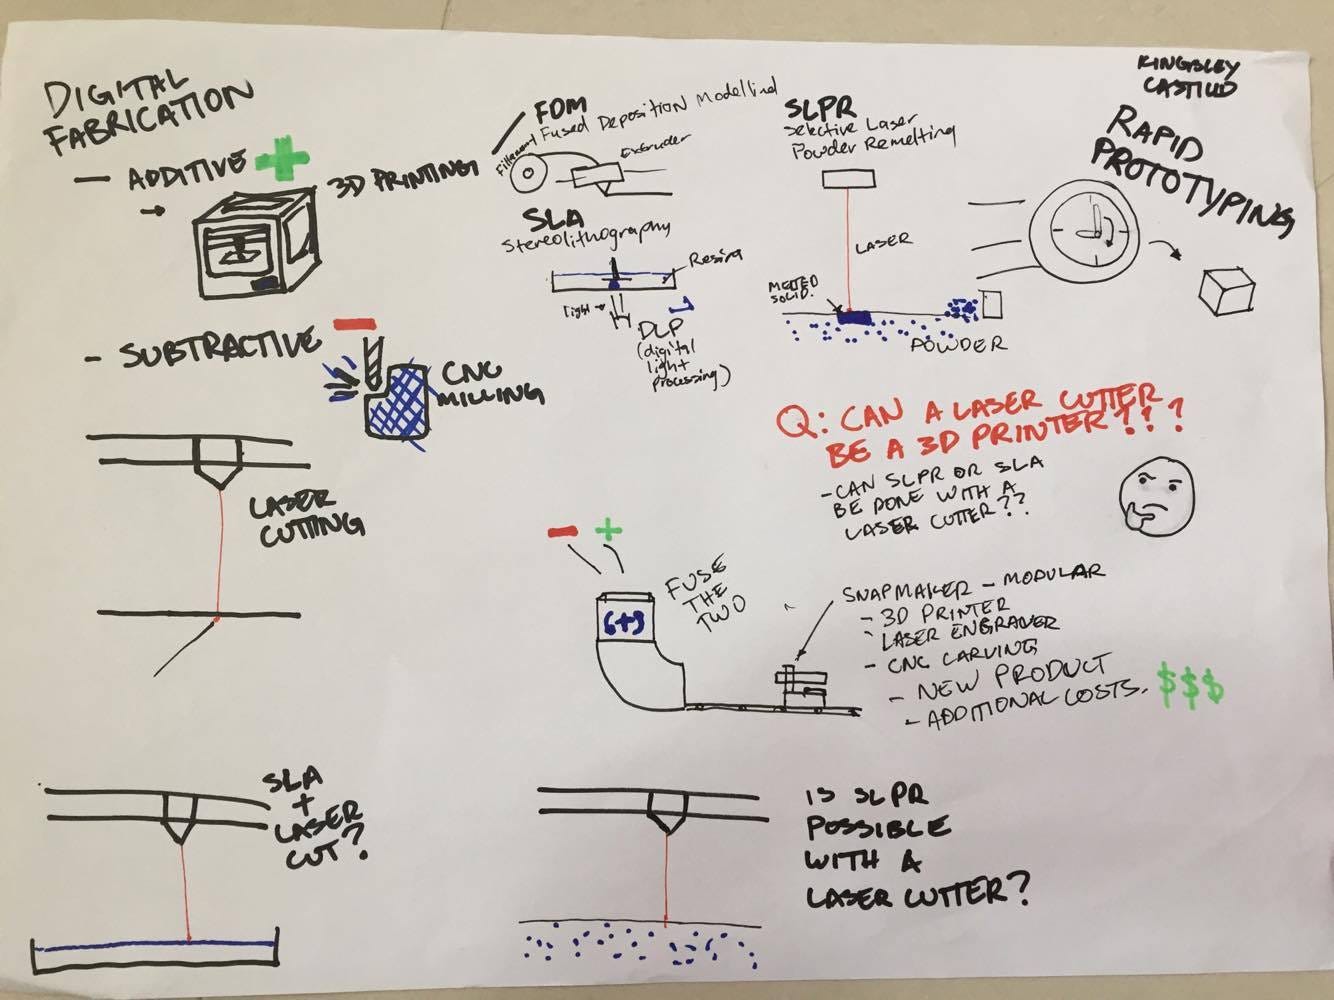 DIGITAL
FABRICATION
— ADDITIVE +
3D PRINTING
- SUBTRACTIVE
CNC
MILLING
LASER
CUTTING
FDM
Fused Deposition Modelling
Filament
Extruder
SLA
Stereolithography
Resin
light
DLP
(digital
light
processing)
SLPR
Selective Laser
Powder Remelting
LASER
MELTED
SOLID.
POWDER
KINGSLEY
CASTILLO
RAPID
PROTOTYPING
Q: CAN A LASER CUTTER
BE A 3D PRINTER???
- CAN SLPR OR SLA
BE DONE WITH A
LASER CUTTER??
- +
FUSE
THE
TWO
SNAPMAKER - MODULAR
- 3D PRINTER
- LASER ENGRAVER
- CNC CARVING
- NEW PRODUCT
- ADDITIONAL COSTS. $$$
SLA
+
LASER
CUT?
IS SLPR
POSSIBLE
WITH A
LASER CUTTER?